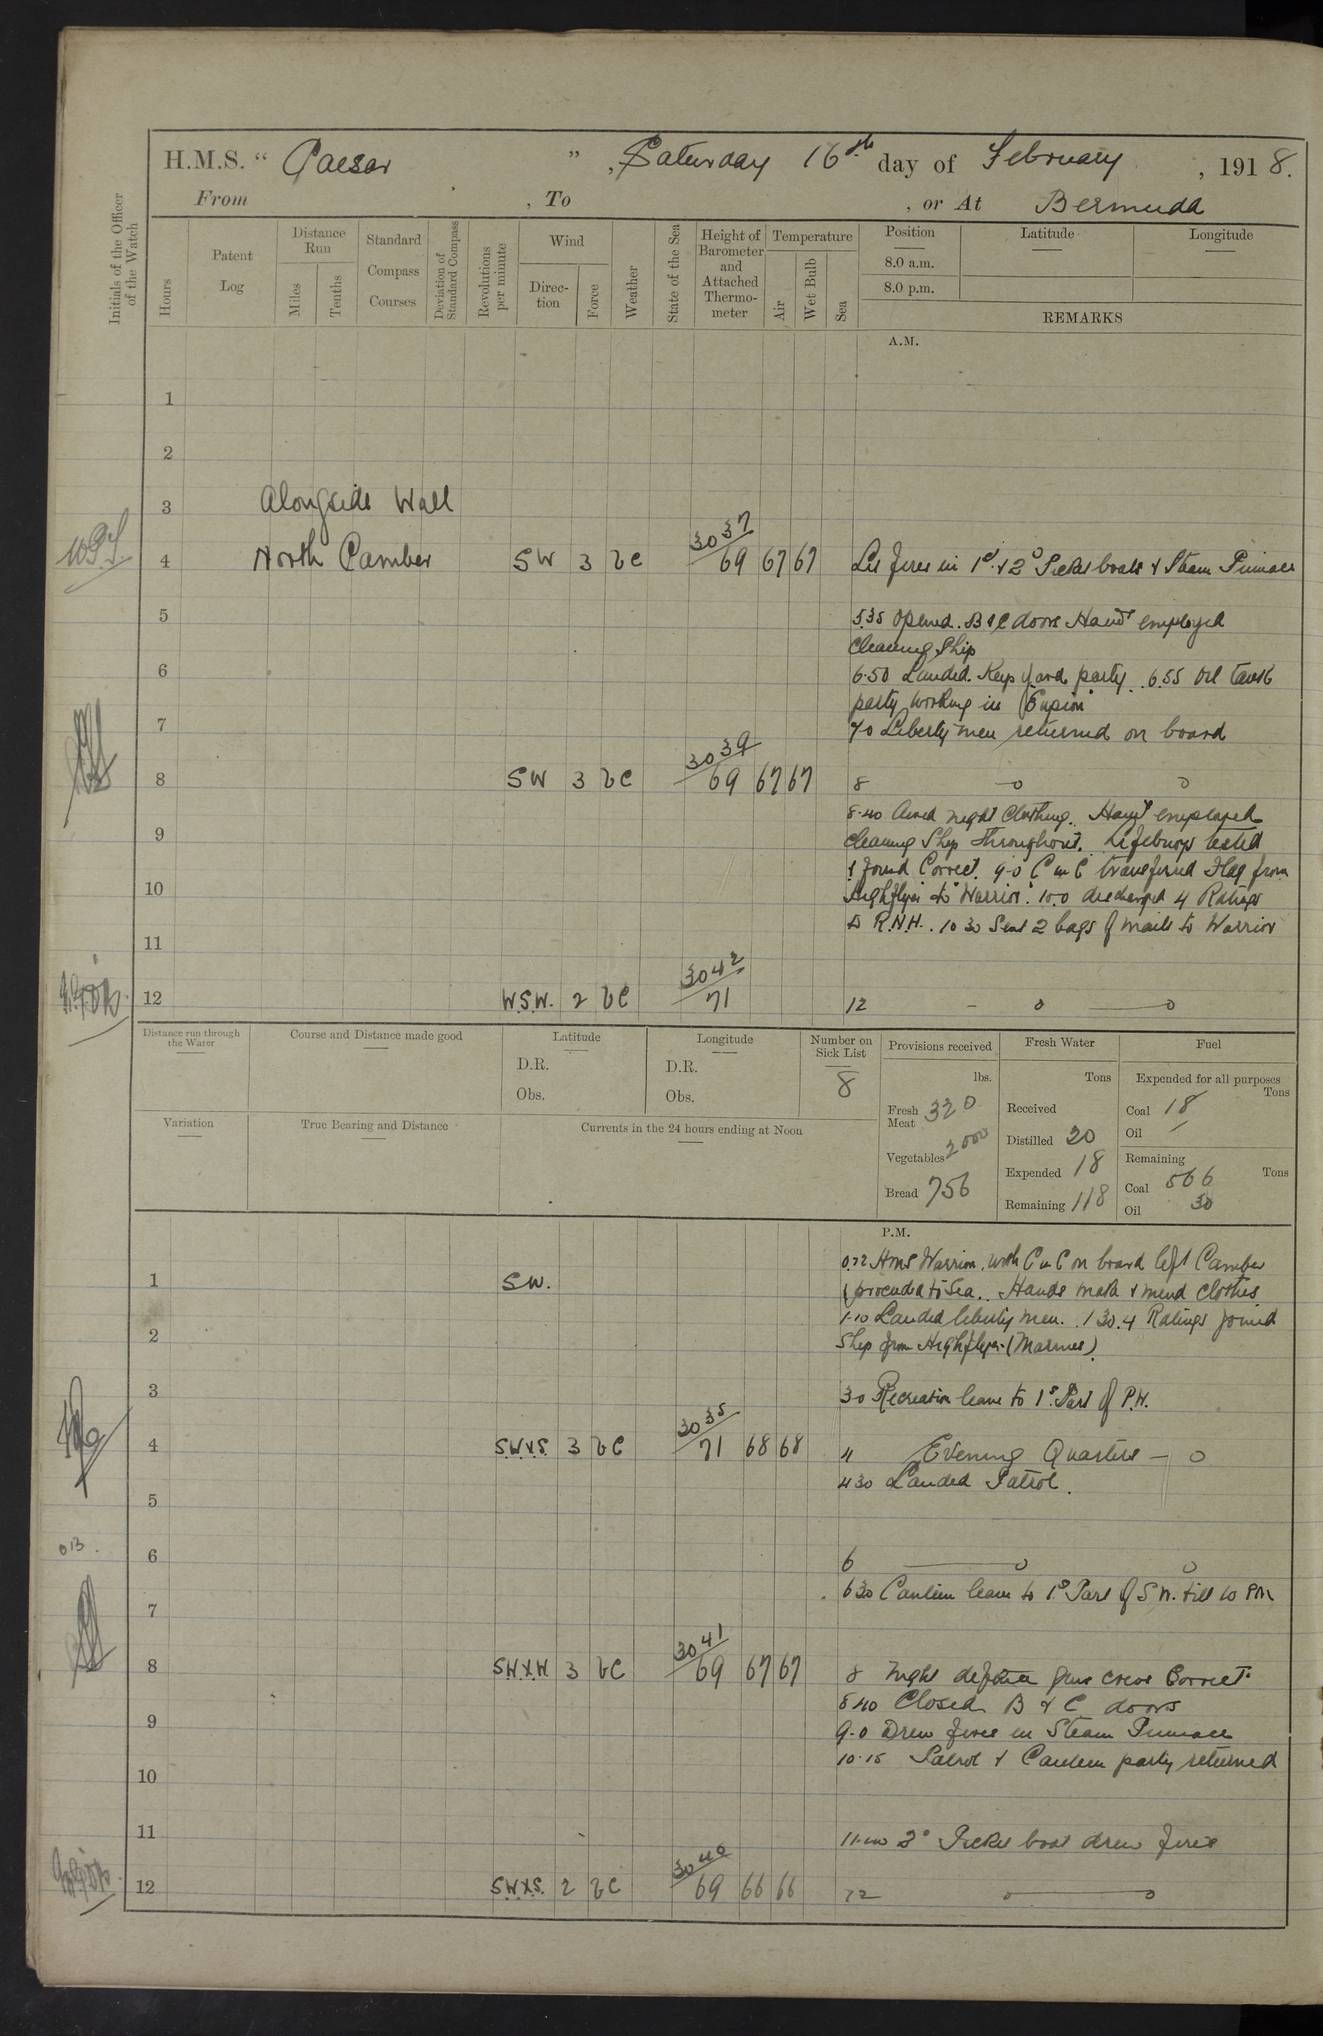 H.M.S. “ Caesar ” , Saturday 16th day of February , 1918.
From , To , or At Bermuda
Initials of the Officer of the Watch
Hours
Patent Log
Distance Run
Miles
Tenths
Standard Compass Courses
Deviation of Standard Compass
Revolutions per minute
Wind
Direc-tion
Force
Weather
State of the Sea
Height of Barometer and Attached Thermo-meter
Temperature
Air
Wet Bulb
Sea
Position
8.0 a.m.
8.0 p.m.
Latitude
Longitude
REMARKS
A.M.
1
2
3 Alongside Wall
4 North Camber SW 3 bc 3037 69 67 67 Lit fires in 1st & 2d Picket boats & Steam Pinnace
5 5.35 Opened B & C doors Hands employed
cleaning Ship
6 6.50 Landed Keep Yard party. 6.55 Oil tank
party working in
7 7.0 Liberty men returned on board
8 SW 3 bc 3039 69 67 67 8 —o o
8.40 Aired night Clothing. Hands employed
9 cleaning Ship throughout. Lifebuoys tested
& found Correct. 9.0 C in C transferred Flag from
10 Highflyer to "Warrior". 10.0 discharged 4 Ratings
to R.N.H. 10 30 Sent 2 bags of mails to Warrior
11
12 W.S.W. 2 bc 3042 71 12 - o —o
Distance run through the Water
Course and Distance made good
Latitude
D.R.
Obs.
Longitude
D.R.
Obs.
Number on Sick List
8
Provisions received
lbs.
Fresh Meat 320
Vegetables 2000
Bread 756
Fresh Water
Tons
Received
Distilled 20
Expended 18
Remaining 118
Fuel
Expended for all purposes
Tons
Coal 18
Oil /
Remaining
Tons
Coal 566
Oil 30
Variation
True Bearing and Distance
Currents in the 24 hours ending at Noon
P.M.
HMS Warrior with C in C on board left Camber
1 SW. & proceeded to Sea. Hands make & mend clothes
1.10 Landed liberty men. 1 30. 4 Ratings joined
2 Ship from Highflyer (Marines)
3 3 0 Recreation leave to 1st Part of P.W.
4 S.W.xS. 3 bc 3035 71 68 68 4 Evening Quarters — o
4 30 Landed Patrol.
5
6 6 —o o
6 30 Canteen leave to 1st Part of S W. till 10 PM
7
8 SWxW 3 bc 3041 69 67 67 8 Night defence guns crews Correct
8 40 Closed B & C doors
9 9.0 Drew fires in Steam Pinnace
10.15 Patrol & Canteen party returned
10
11 2d Picket boat drew fires
12 S.W.xS. 2 bc 3040 69 66 66 12 o—o